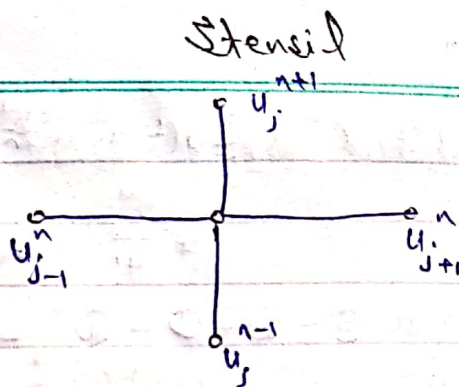 Stensil
u_j^{n+1}
u_{j-1}^n
u_{j+1}^n
u_j^{n-1}